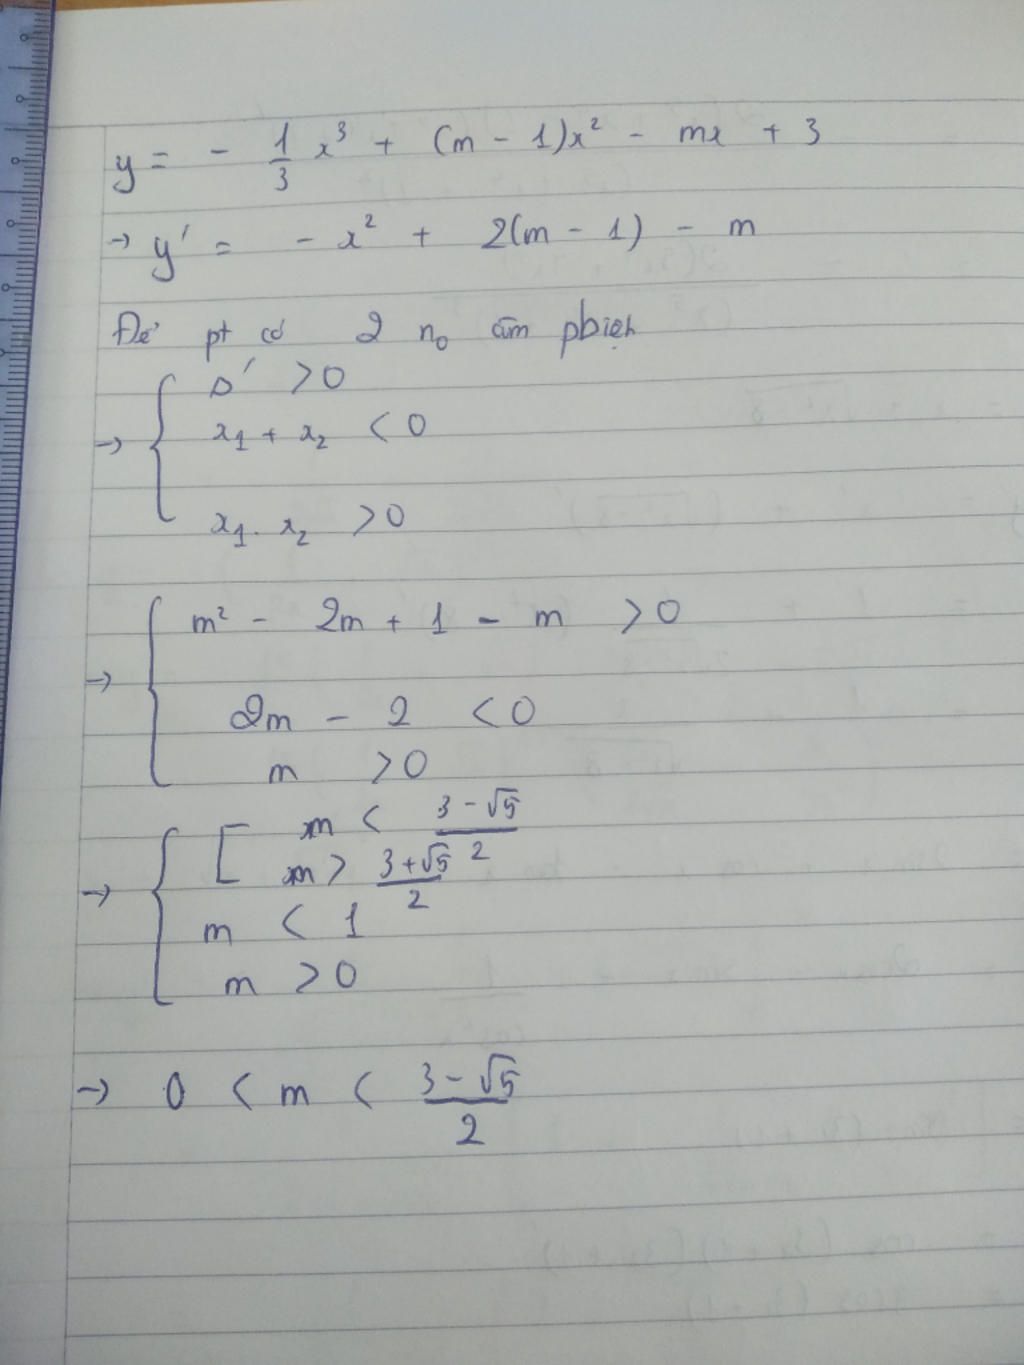 y = - 1/3 x³ + (m - 1)x² - mx + 3
→ y' = - x² + 2(m - 1) - m
Để pt có 2 n₀ âm pbiệt
→ { Δ' > 0
x₁ + x₂ < 0
x₁ . x₂ > 0
→ { m² - 2m + 1 - m > 0
2m - 2 < 0
m > 0
→ { [ m < (3 - √5)/2
m > (3 + √5)/2
m < 1
m > 0
→ 0 < m < (3 - √5)/2